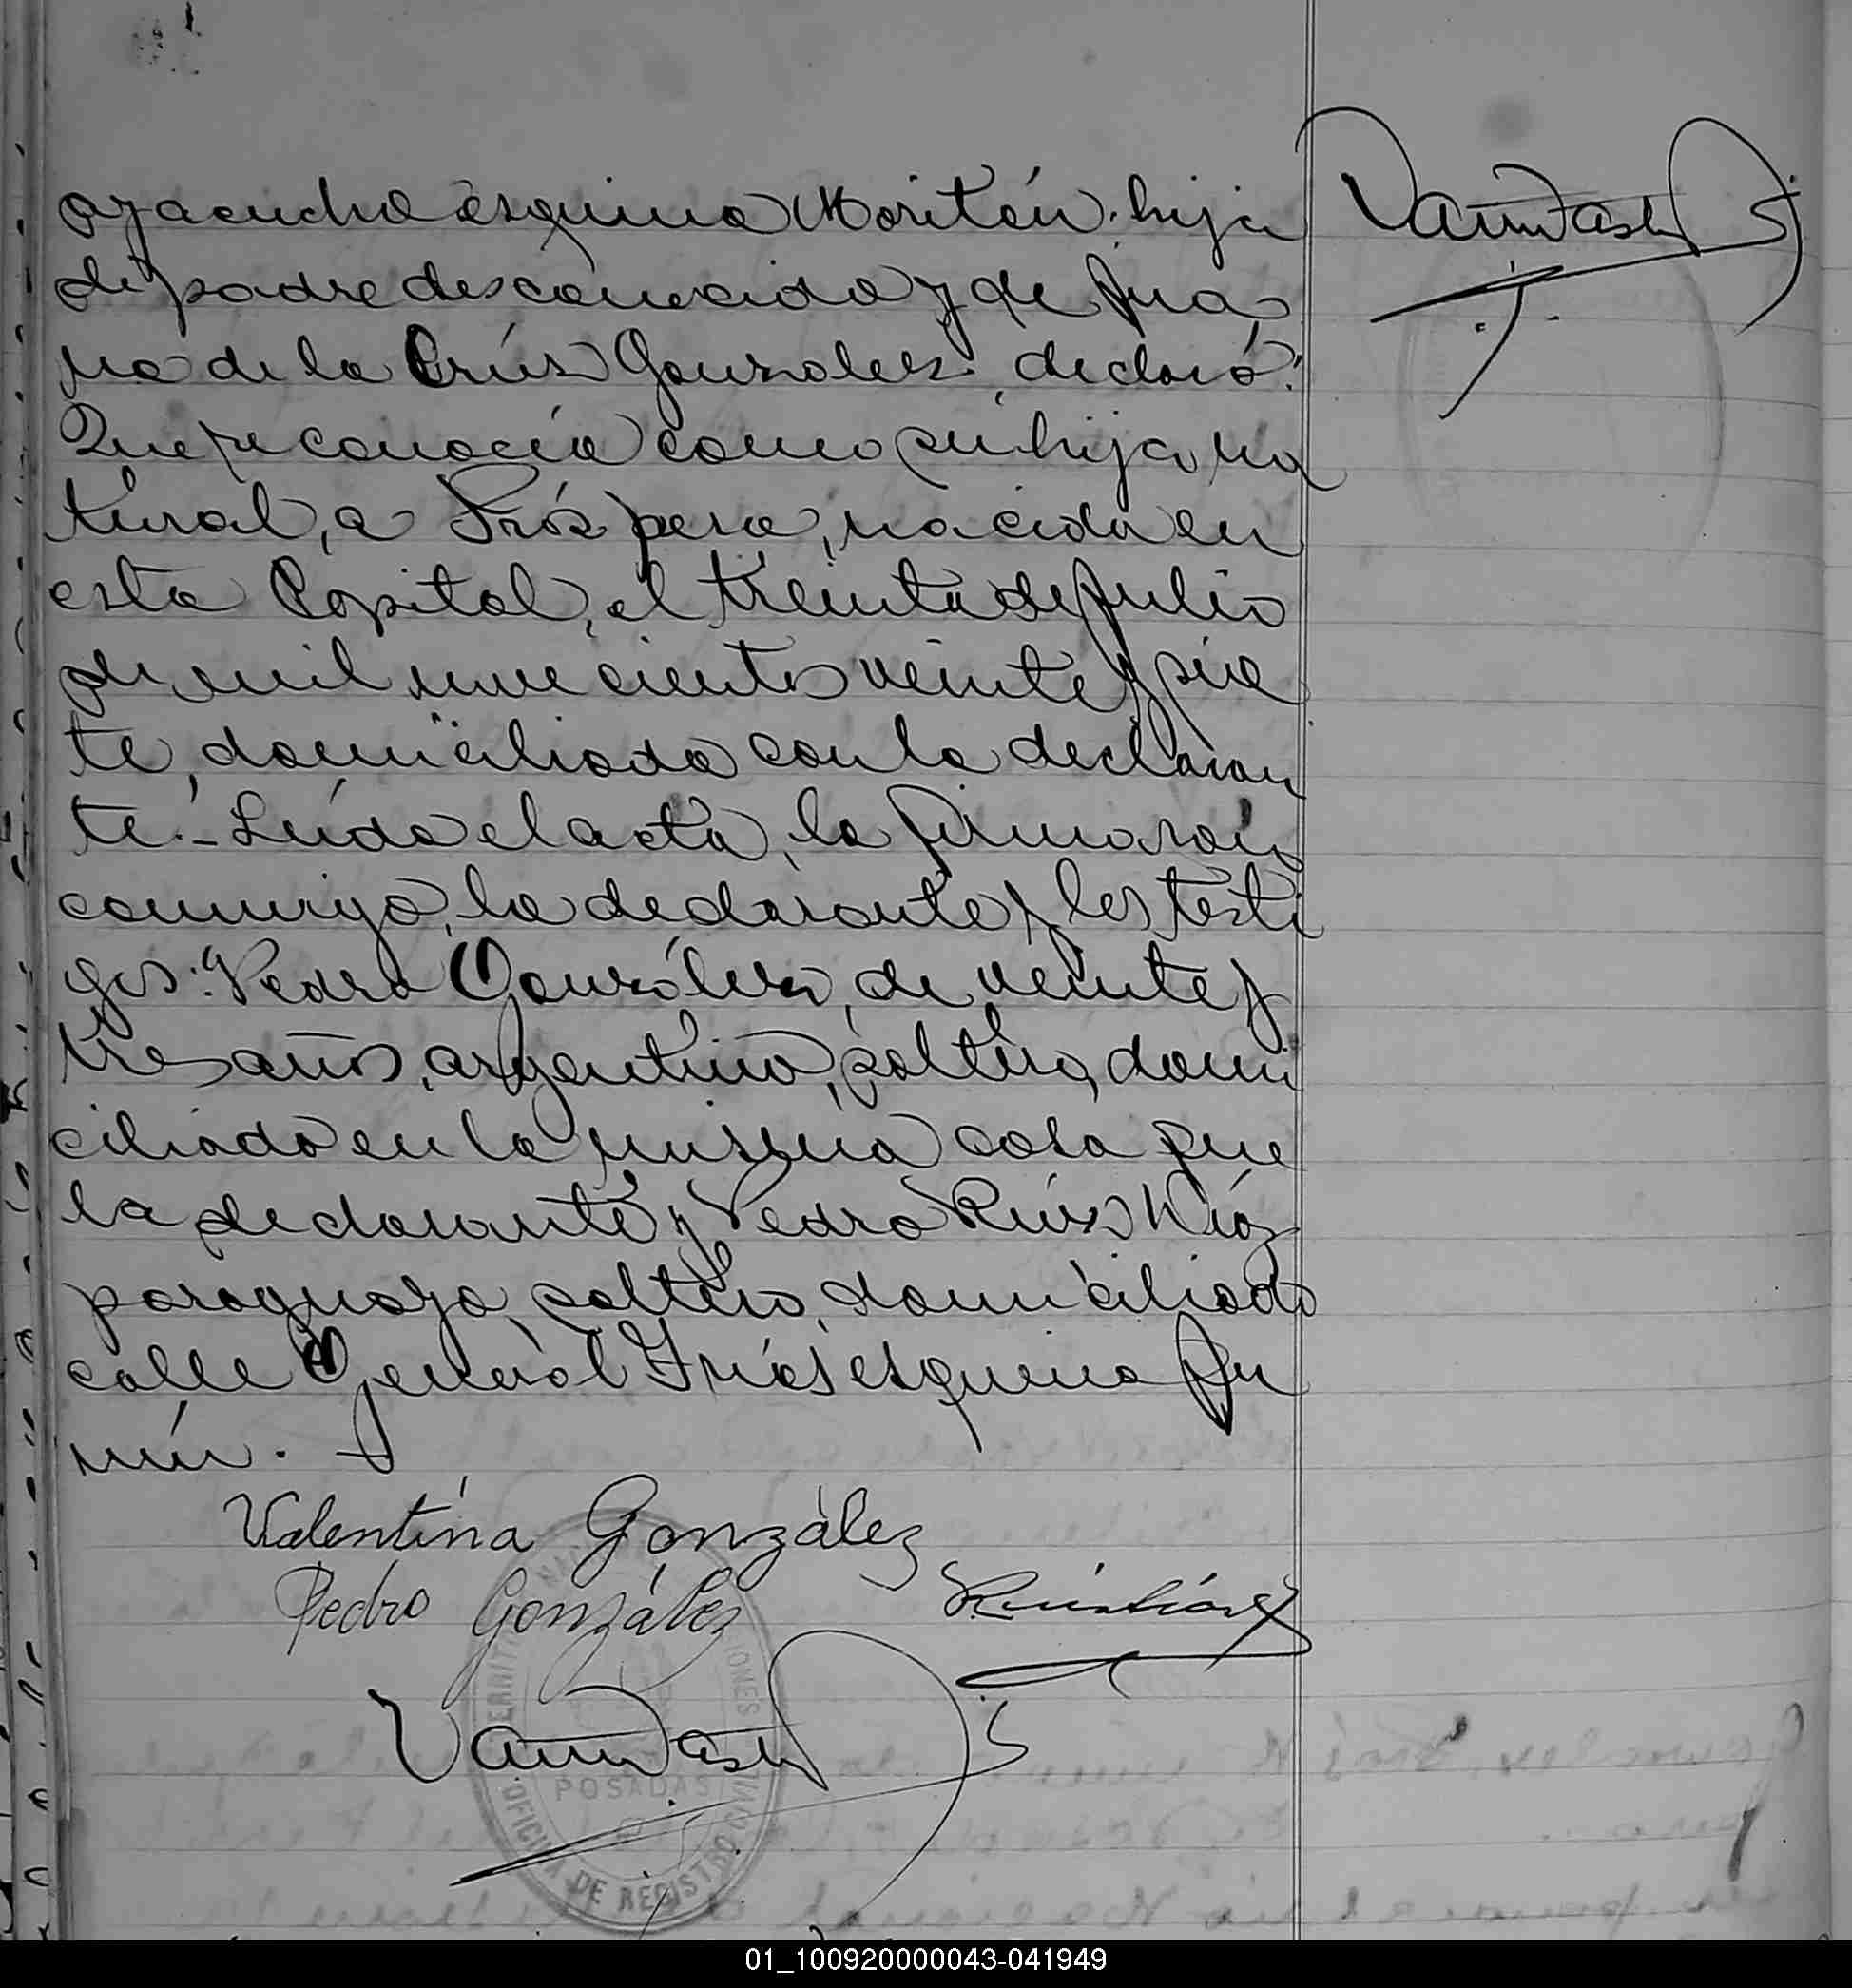 ayacucho esquina Moritán, hija
de padre desconocido y de Jua
na de la Crúz Gonzalez, declaró:
Que reconocía como su hija na
tural, a Próspera, nacida en
esta Capital, el treinta de Julio
de mil nuvecientos veinte y sie
te, domiciliada con la declaran
te.- Leída el acta, la firmaron
conmigo, la declarante y los testi
gos: Pedro González, de veinte y
tres años, argentino, soltero, domi
ciliado en la misma casa que
la declarante y Pedro Ruíz Díaz
paraguayo, soltero, domiciliado
calle General Frías esquina Ju
nín.
Valentína González
Pedro González
Ruiz Díaz
TERRITORIO NACIONAL MISIONES
POSADAS
OFICINA DE REGISTRO CIVIL
01_100920000043-041949